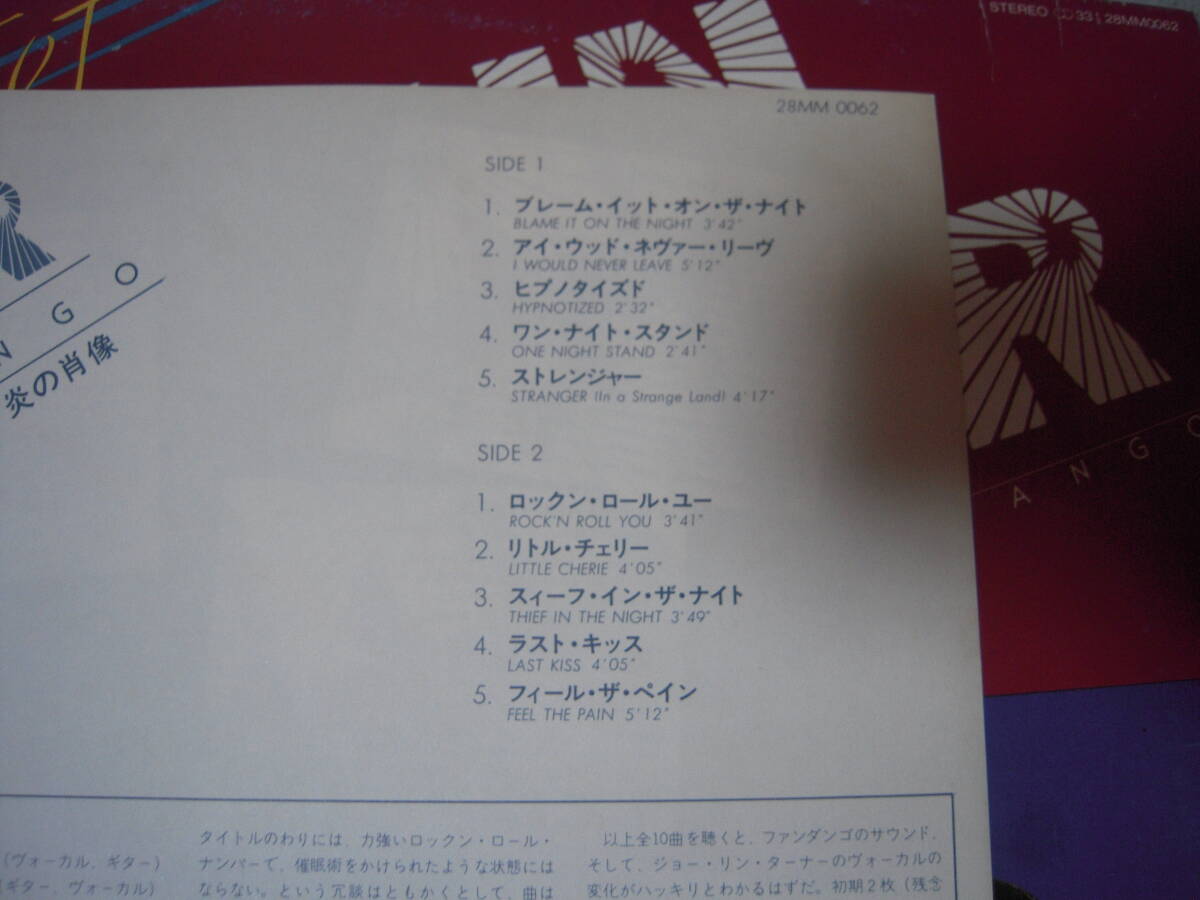 STEREO 33⅓ 28MM0062
28MM 0062
SIDE 1
1. ブレーム・イット・オン・ザ・ナイト
BLAME IT ON THE NIGHT 3'42"
2. アイ・ウッド・ネヴァー・リーヴ
I WOULD NEVER LEAVE 5'12"
3. ヒプノタイズド
HYPNOTIZED 2'32"
4. ワン・ナイト・スタンド
ONE NIGHT STAND 2'41"
5. ストレンジャー
STRANGER (In a Strange Land) 4'17"
SIDE 2
1. ロックン・ロール・ユー
ROCK'N ROLL YOU 3'41"
2. リトル・チェリー
LITTLE CHERIE 4'05"
3. スィーフ・イン・ザ・ナイト
THIEF IN THE NIGHT 3'49"
4. ラスト・キッス
LAST KISS 4'05"
5. フィール・ザ・ペイン
FEEL THE PAIN 5'12"
R
N G O
炎の肖像
R
A N G O
(ヴォーカル、ギター)
(ギター、ヴォーカル)
タイトルのわりには、力強いロックン・ロール・
ナンバーで、催眠術をかけられたような状態には
ならない。という冗談はともかくとして、曲は
以上全10曲を聴くと、ファンダンゴのサウンド、
そして、ジョー・リン・ターナーのヴォーカルの
変化がハッキリとわかるはずだ。初期2枚(残念